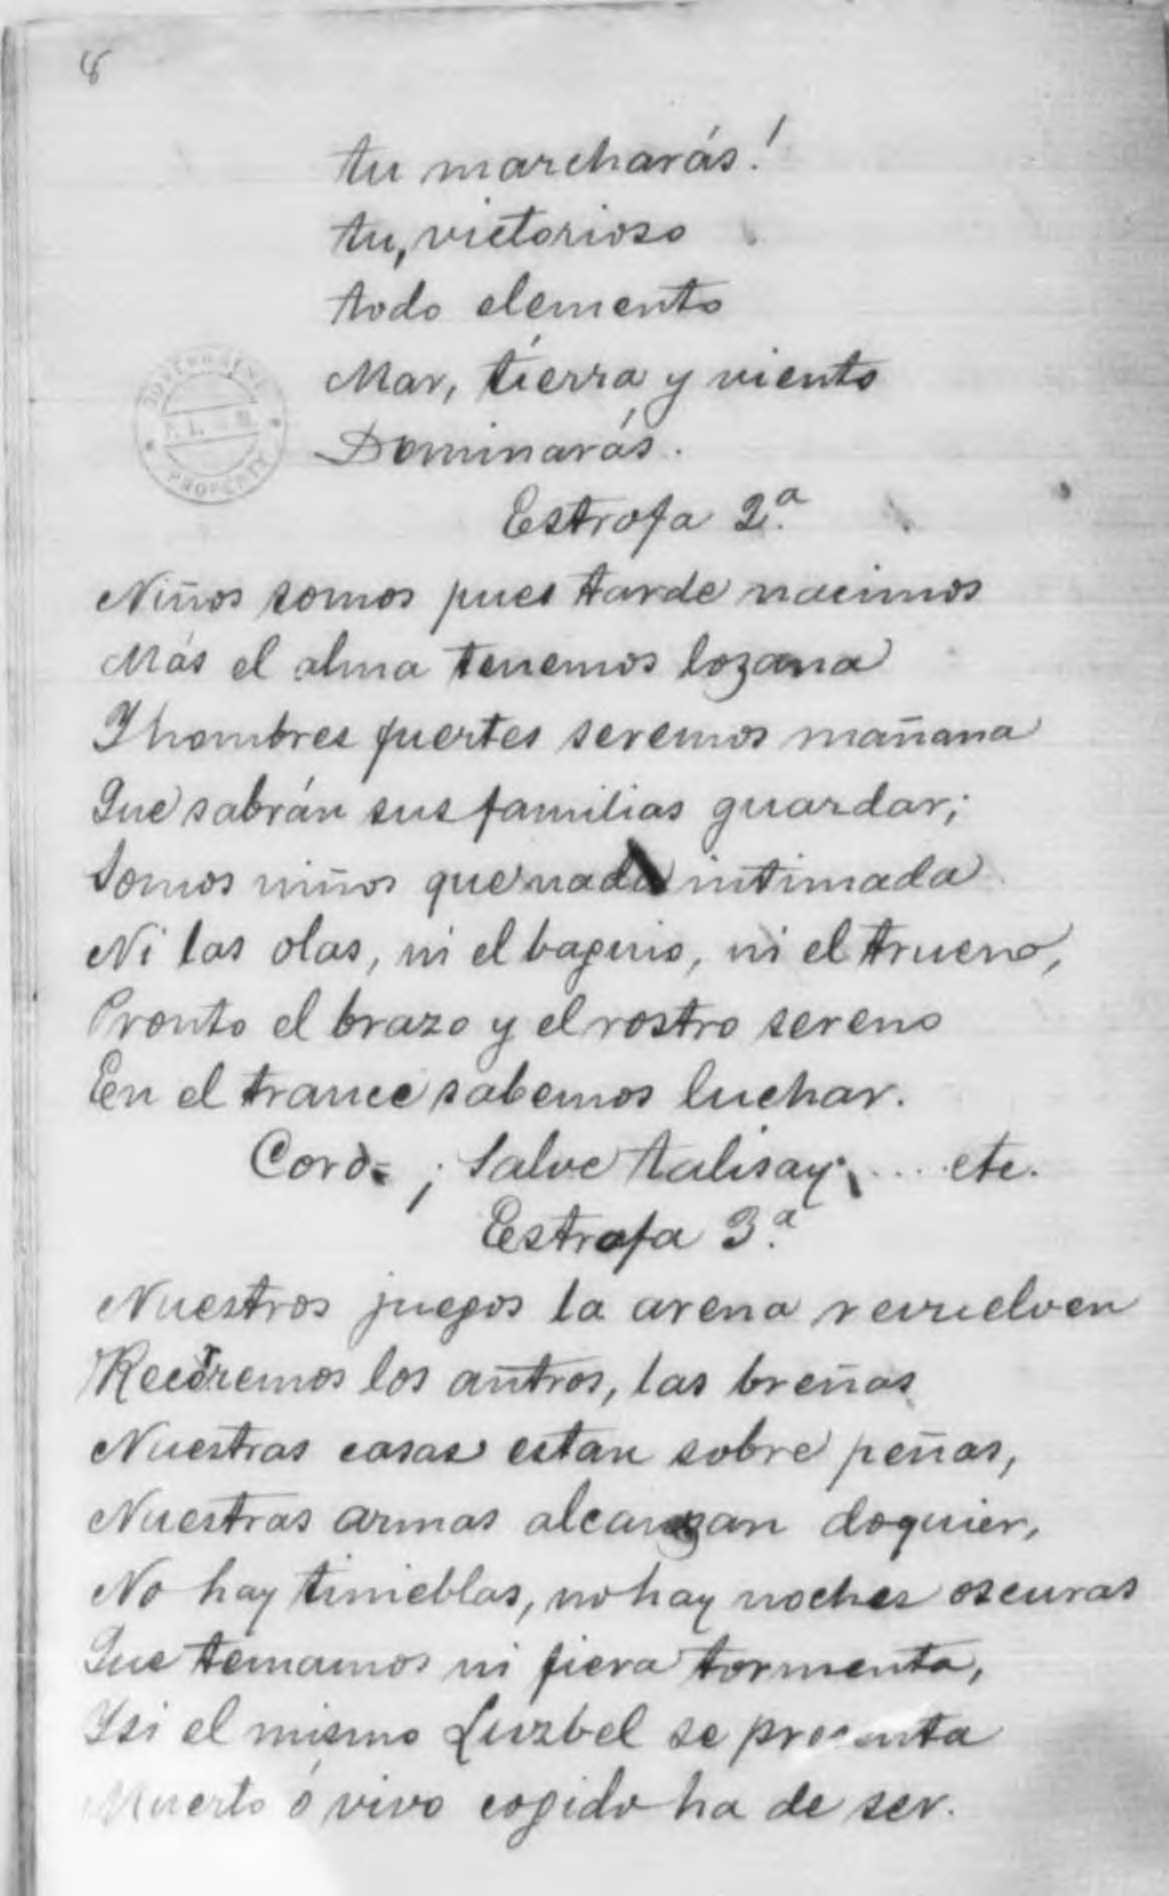 8
tu marcharás!
tu, victorioso
todo elemento
Mar, tierra y viento
Dominarás.
Estrofa 2.ª
Niños somos pues tarde nacimos
Más el alma tenemos lozana
Y hombres fuertes seremos mañana
Que sabrán sus familias guardar;
Somos niños que nada intimada
Ni las olas, ni el baguio, ni el trueno,
Pronto el brazo y el rostro sereno
En el trance sabemos luchar.
Coro= ¡Salve talisay .... etc.
Estrofa 3.ª
Nuestros juegos la arena revuelven
los antros, las breñas
Nuestras casas estan sobre peñas,
Nuestras armas alcanzan doquier,
No hay tinieblas, no hay noches oscuras
Que temamos ni fiera tormenta,
Y si el mismo Luzbel se presenta
Muerto ó vivo cogido ha de ser.
PROPERTY